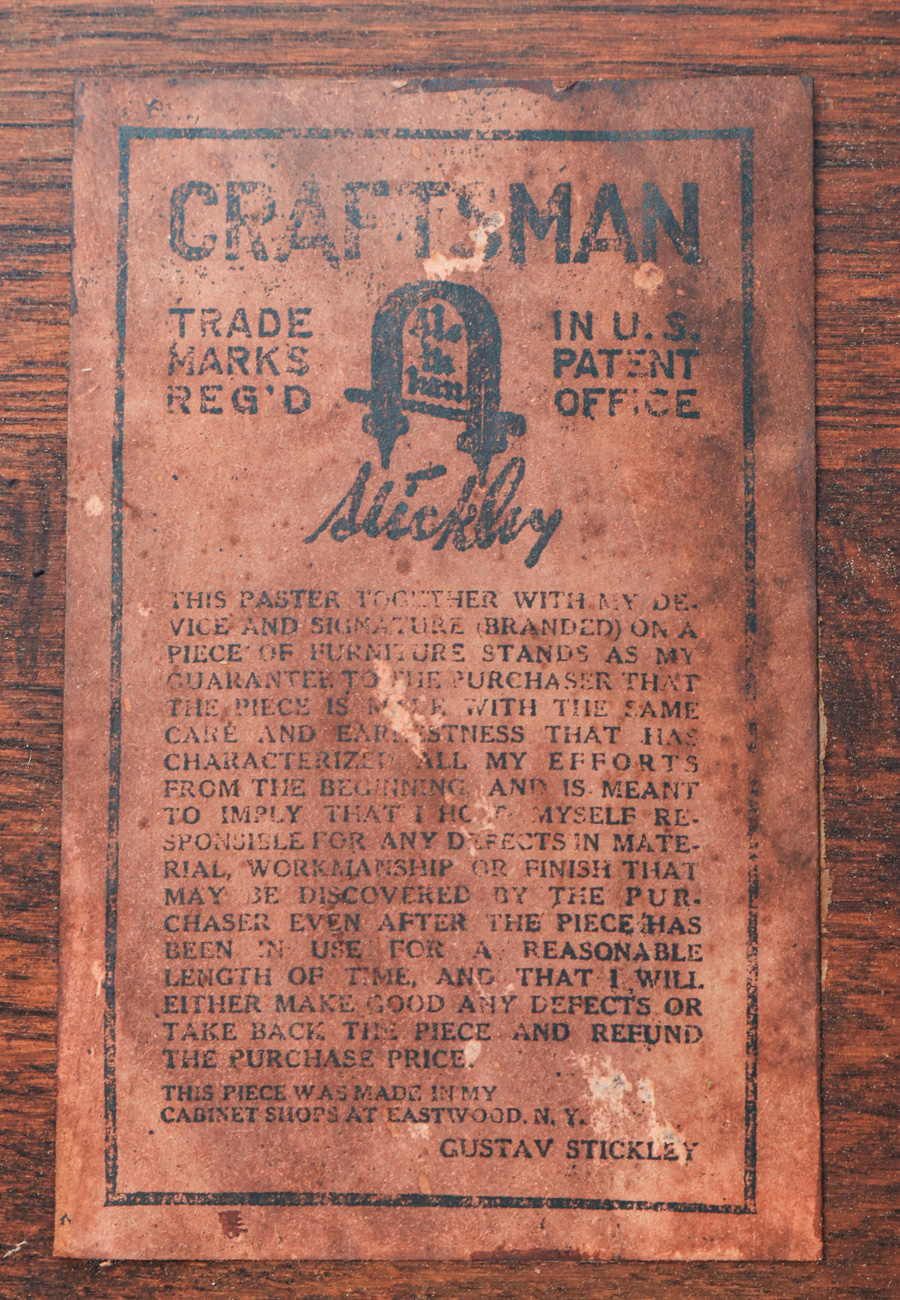 CRAFTSMAN
TRADE
MARKS
REG'D
Als
ik
kan
IN U. S.
PATENT
OFFICE
Stickley
THIS PASTER TOGETHER WITH MY DE-
VICE AND SIGNATURE (BRANDED) ON A
PIECE OF FURNITURE STANDS AS MY
GUARANTEE TO THE PURCHASER THAT
THE PIECE IS MADE WITH THE SAME
CARE AND EARNESTNESS THAT HAS
CHARACTERIZED ALL MY EFFORTS
FROM THE BEGINNING, AND IS MEANT
TO IMPLY THAT I HOLD MYSELF RE-
SPONSIBLE FOR ANY DEFECTS IN MATE-
RIAL, WORKMANSHIP OR FINISH THAT
MAY BE DISCOVERED BY THE PUR-
CHASER EVEN AFTER THE PIECE HAS
BEEN IN USE FOR A REASONABLE
LENGTH OF TIME, AND THAT I WILL
EITHER MAKE GOOD ANY DEFECTS OR
TAKE BACK THE PIECE AND REFUND
THE PURCHASE PRICE.
THIS PIECE WAS MADE IN MY
CABINET SHOPS AT EASTWOOD, N. Y.
GUSTAV STICKLEY